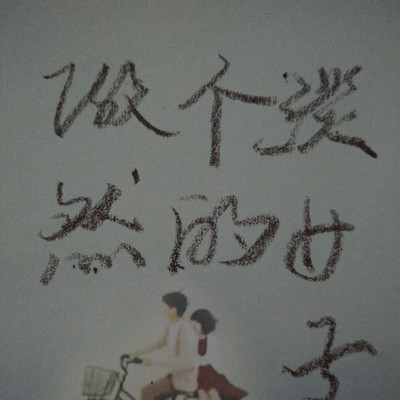 做个淡
然的女
子